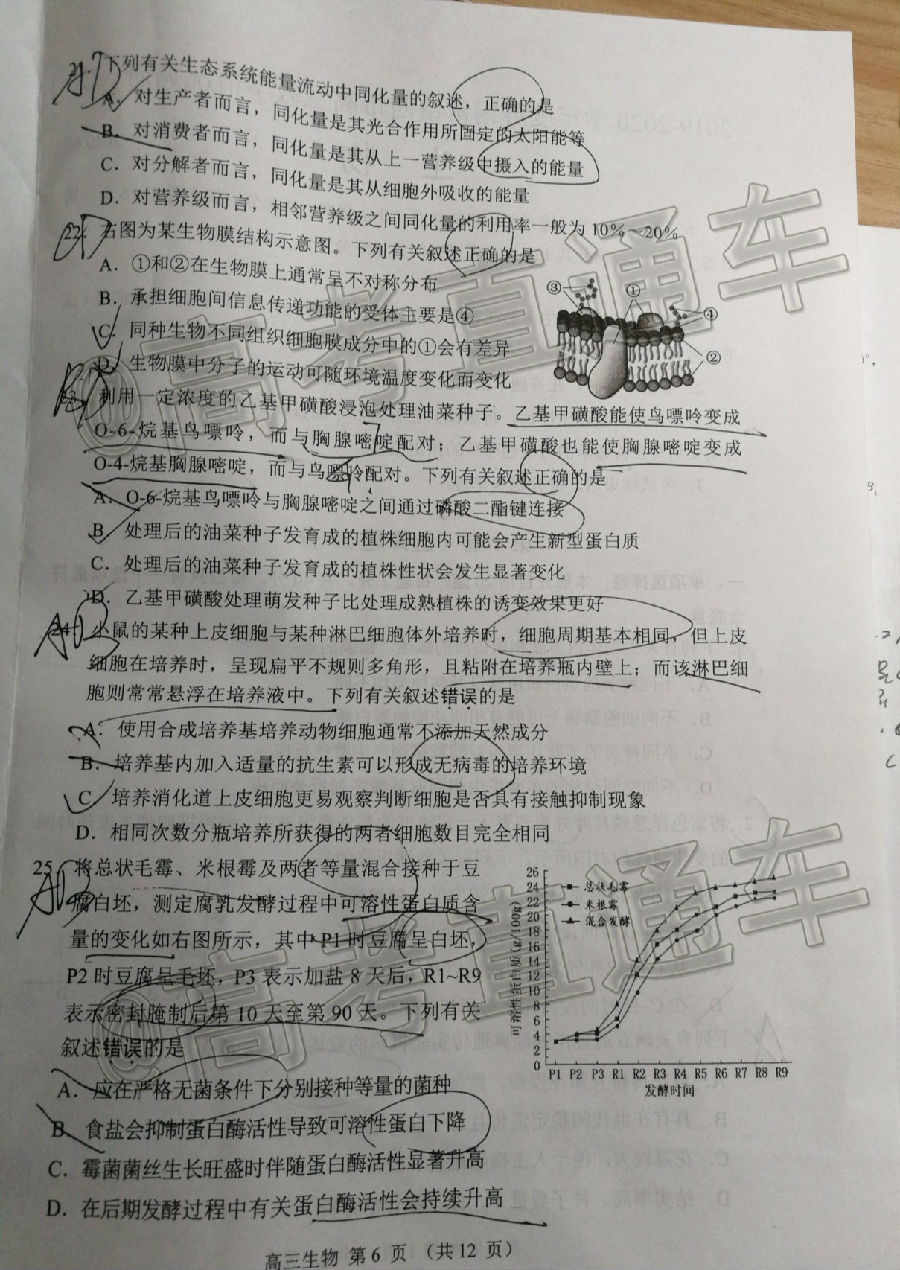 下列有关生态系统能量流动中同化量的叙述，正确的是
A．对生产者而言，同化量是其光合作用所固定的太阳能等
B．对消费者而言，同化量是其从上一营养级中摄入的能量
C．对分解者而言，同化量是其从细胞外吸收的能量
D．对营养级而言，相邻营养级之间同化量的利用率一般为10%~20%
22．右图为某生物膜结构示意图。下列有关叙述正确的是
A．①和②在生物膜上通常呈不对称分布
B．承担细胞间信息传递功能的受体主要是④
C．同种生物不同组织细胞膜成分中的①会有差异
D．生物膜中分子的运动可随环境温度变化而变化
③
①
④
②
利用一定浓度的乙基甲磺酸浸泡处理油菜种子。乙基甲磺酸能使鸟嘌呤变成
O-6-烷基鸟嘌呤，而与胸腺嘧啶配对；乙基甲磺酸也能使胸腺嘧啶变成
O-4-烷基胸腺嘧啶，而与鸟嘌呤配对。下列有关叙述正确的是
A．O-6-烷基鸟嘌呤与胸腺嘧啶之间通过磷酸二酯键连接
B．处理后的油菜种子发育成的植株细胞内可能会产生新型蛋白质
C．处理后的油菜种子发育成的植株性状会发生显著变化
D．乙基甲磺酸处理萌发种子比处理成熟植株的诱变效果更好
24．小鼠的某种上皮细胞与某种淋巴细胞体外培养时，细胞周期基本相同，但上皮
细胞在培养时，呈现扁平不规则多角形，且粘附在培养瓶内壁上；而该淋巴细
胞则常常悬浮在培养液中。下列有关叙述错误的是
A．使用合成培养基培养动物细胞通常不添加天然成分
B．培养基内加入适量的抗生素可以形成无病毒的培养环境
C．培养消化道上皮细胞更易观察判断细胞是否具有接触抑制现象
D．相同次数分瓶培养所获得的两者细胞数目完全相同
25．将总状毛霉、米根霉及两者等量混合接种于豆
腐白坯，测定腐乳发酵过程中可溶性蛋白质含
量的变化如右图所示，其中P1时豆腐呈白坯，
P2时豆腐呈毛坯，P3表示加盐8天后，R1~R9
表示密封腌制后第10天至第90天。下列有关
叙述错误的是
A．应在严格无菌条件下分别接种等量的菌种
B．食盐会抑制蛋白酶活性导致可溶性蛋白下降
C．霉菌菌丝生长旺盛时伴随蛋白酶活性显著升高
D．在后期发酵过程中有关蛋白酶活性会持续升高
可溶性蛋白质(g/100g)
26
24
22
20
18
16
14
12
10
8
6
4
2
0
总状毛霉
米根霉
混合发酵
P1 P2 P3 R1 R2 R3 R4 R5 R6 R7 R8 R9
发酵时间
高三生物 第6页 （共12页）
@高考直通车
@高考直通车